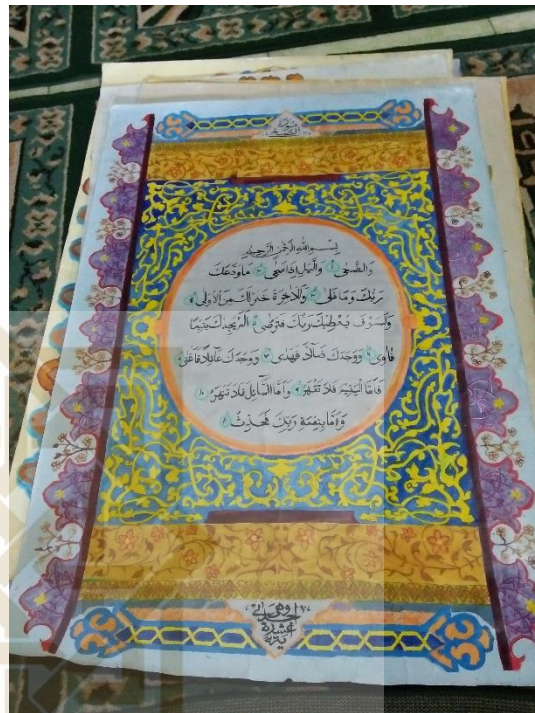 بِسْمِ اللهِ الرَّحْمٰنِ الرَّحِيْمِ
وَالضُّحٰى ١ وَالَّيْلِ اِذَا سَجٰى ٢ مَا وَدَّعَكَ
رَبُّكَ وَمَا قَلٰى ٣ وَلَلْاٰخِرَةُ خَيْرٌ لَّكَ مِنَ الْاُوْلٰى ٤
وَلَسَوْفَ يُعْطِيْكَ رَبُّكَ فَتَرْضٰى ٥ اَلَمْ يَجِدْكَ يَتِيْمًا
فَاٰوٰى ٦ وَوَجَدَكَ ضَالًّا فَهَدٰى ٧ وَوَجَدَكَ عَائِلًا فَاَغْنٰى ٨
فَاَمَّا الْيَتِيْمَ فَلَا تَقْهَرْ ٩ وَاَمَّا السَّائِلَ فَلَا تَنْهَرْ ١٠
وَاَمَّا بِنِعْمَةِ رَبِّكَ فَحَدِّثْ ١١
وهي احدى
عشرة
اية